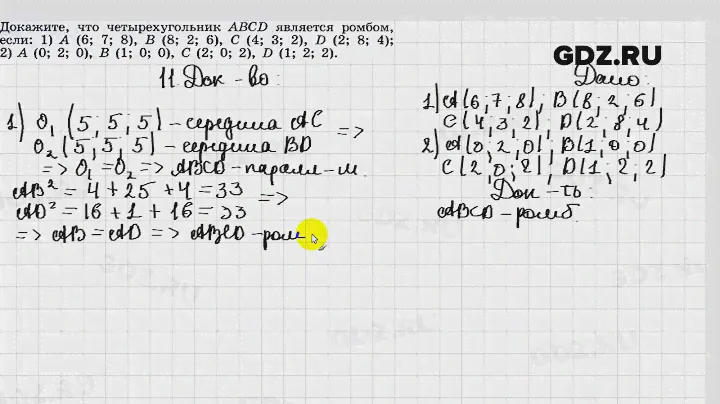 Докажите, что четырехугольник ABCD является ромбом,
если: 1) A (6; 7; 8), B (8; 2; 6), C (4; 3; 2), D (2; 8; 4);
2) A (0; 2; 0), B (1; 0; 0), C (2; 0; 2), D (1; 2; 2).
GDZ.RU
11. Док-во:
Дано:
1) O₁ (5; 5; 5) – середина AC
O₂ (5; 5; 5) – середина BD =>
=> O₁ = O₂ => ABCD – паралл-м.
AB² = 4 + 25 + 4 = 33 =>
AD² = 16 + 1 + 16 = 33
=> AB = AD => ABCD – ром
1) A(6; 7; 8); B(8; 2; 6)
C(4; 3; 2); D(2; 8; 4)
2) A(0; 2; 0); B(1; 0; 0)
C(2; 0; 2); D(1; 2; 2)
Док-ть:
ABCD – ромб.